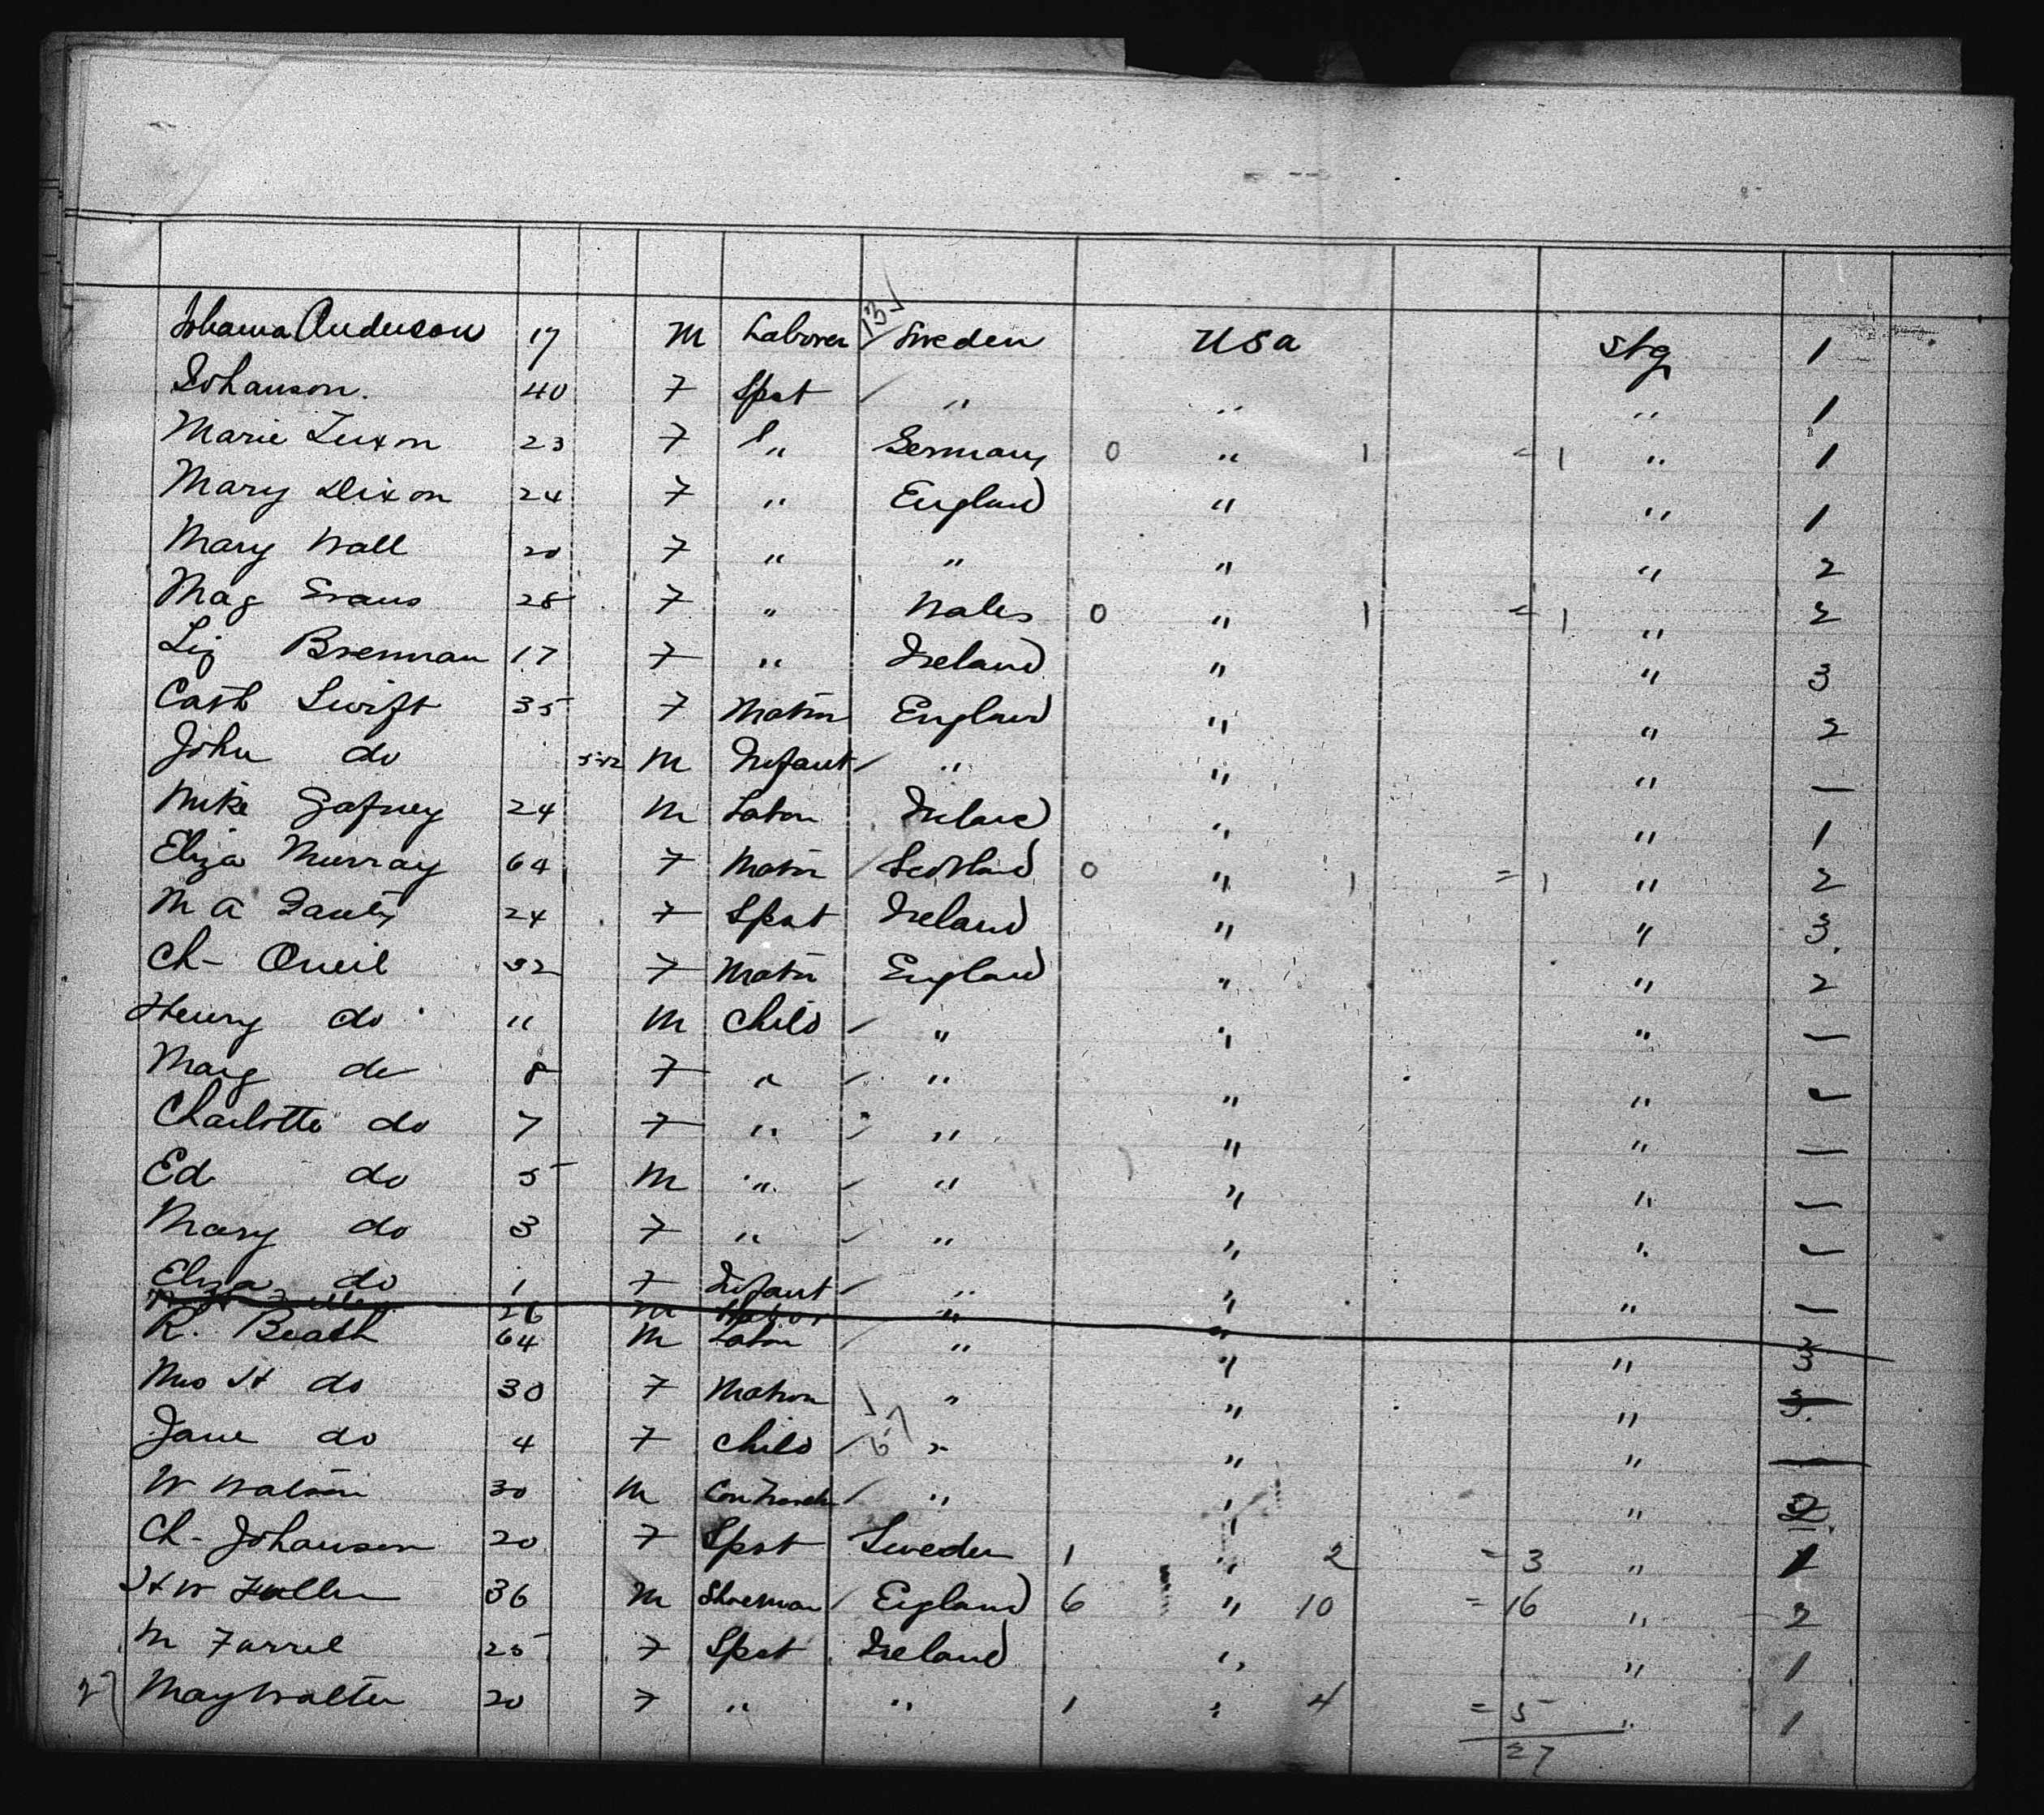 13 ✓
Johanna Anderson 17 M Laborer / Sweden USA Stg 1
Johanson. 40 F Spst / " " " 1
Marie Luxon 23 F " Germany 0 " 1 = 1 " 1
Mary Dixon 24 F " England " " 1
Mary Wall 20 F " " " " 2
Mag Evans 28 F " Wales 0 " 1 = 1 " 2
Liz Brennan 17 F " Ireland " " 3
Cath Swift 35 F Matrn England " " 2
John do M Infant / " " " —
Mike Gafney 24 M Labor Ireland " " 1
Eliza Murray 64 F Matrn / Scotland 0 " 1 = 1 " 2
M A 24 F Spst Ireland " " 3.
Ch- Oneil 32 F Matrn England " " 2
Henry do 11 M Child / " " " —
Marg do 8 F " / " " " —
Charlotte do 7 F " / " " " —
Ed do 5 M " / " " " —
Mary do 3 F " / " " " —
Eliza do 1 F Infant / " " " —
26 M " "
R. Beath 64 M Labor / " " " 3
Mrs H do 30 F Matron / " " " 3.
Jane do 4 F Child / " " " —
W Watson 30 M / " " "
Ch- Johansen 20 F Spst Sweden 1 " 2 = 3 " 1
H W Fuller 36 M Shoeman / England 6 " 10 = 16 " 2
M Farrel 25 F Spst Ireland " " 1
27 May Walter 20 F " " 1 " 4 = 5 " 1
27